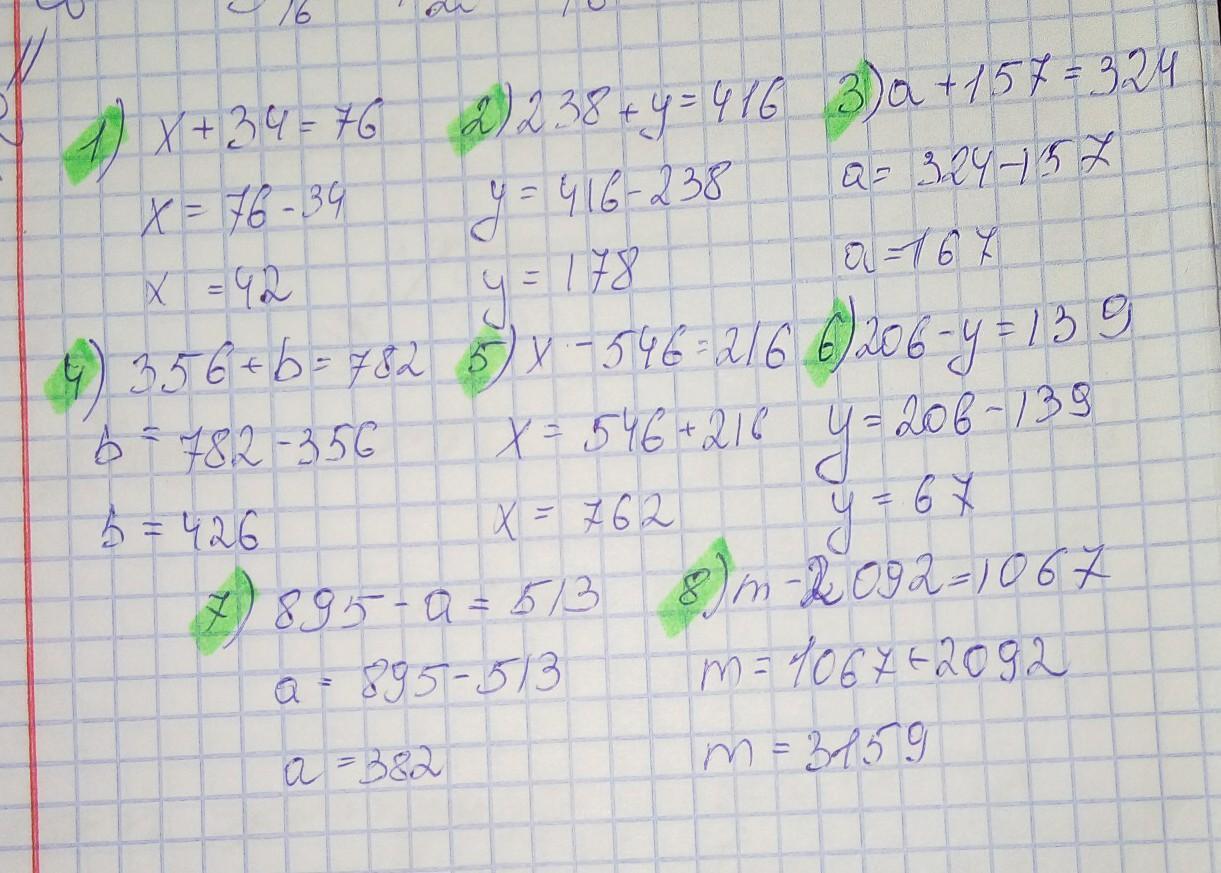 16
1) x + 34 = 76
x = 76 - 34
x = 42
2) 238 + y = 416
y = 416 - 238
y = 178
3) a + 157 = 324
a = 324 - 157
a = 167
4) 356 + b = 782
b = 782 - 356
b = 426
5) x - 546 = 216
x = 546 + 216
x = 762
6) 206 - y = 139
y = 206 - 139
y = 67
7) 895 - a = 513
a = 895 - 513
a = 382
8) m - 2092 = 1067
m = 1067 + 2092
m = 3159